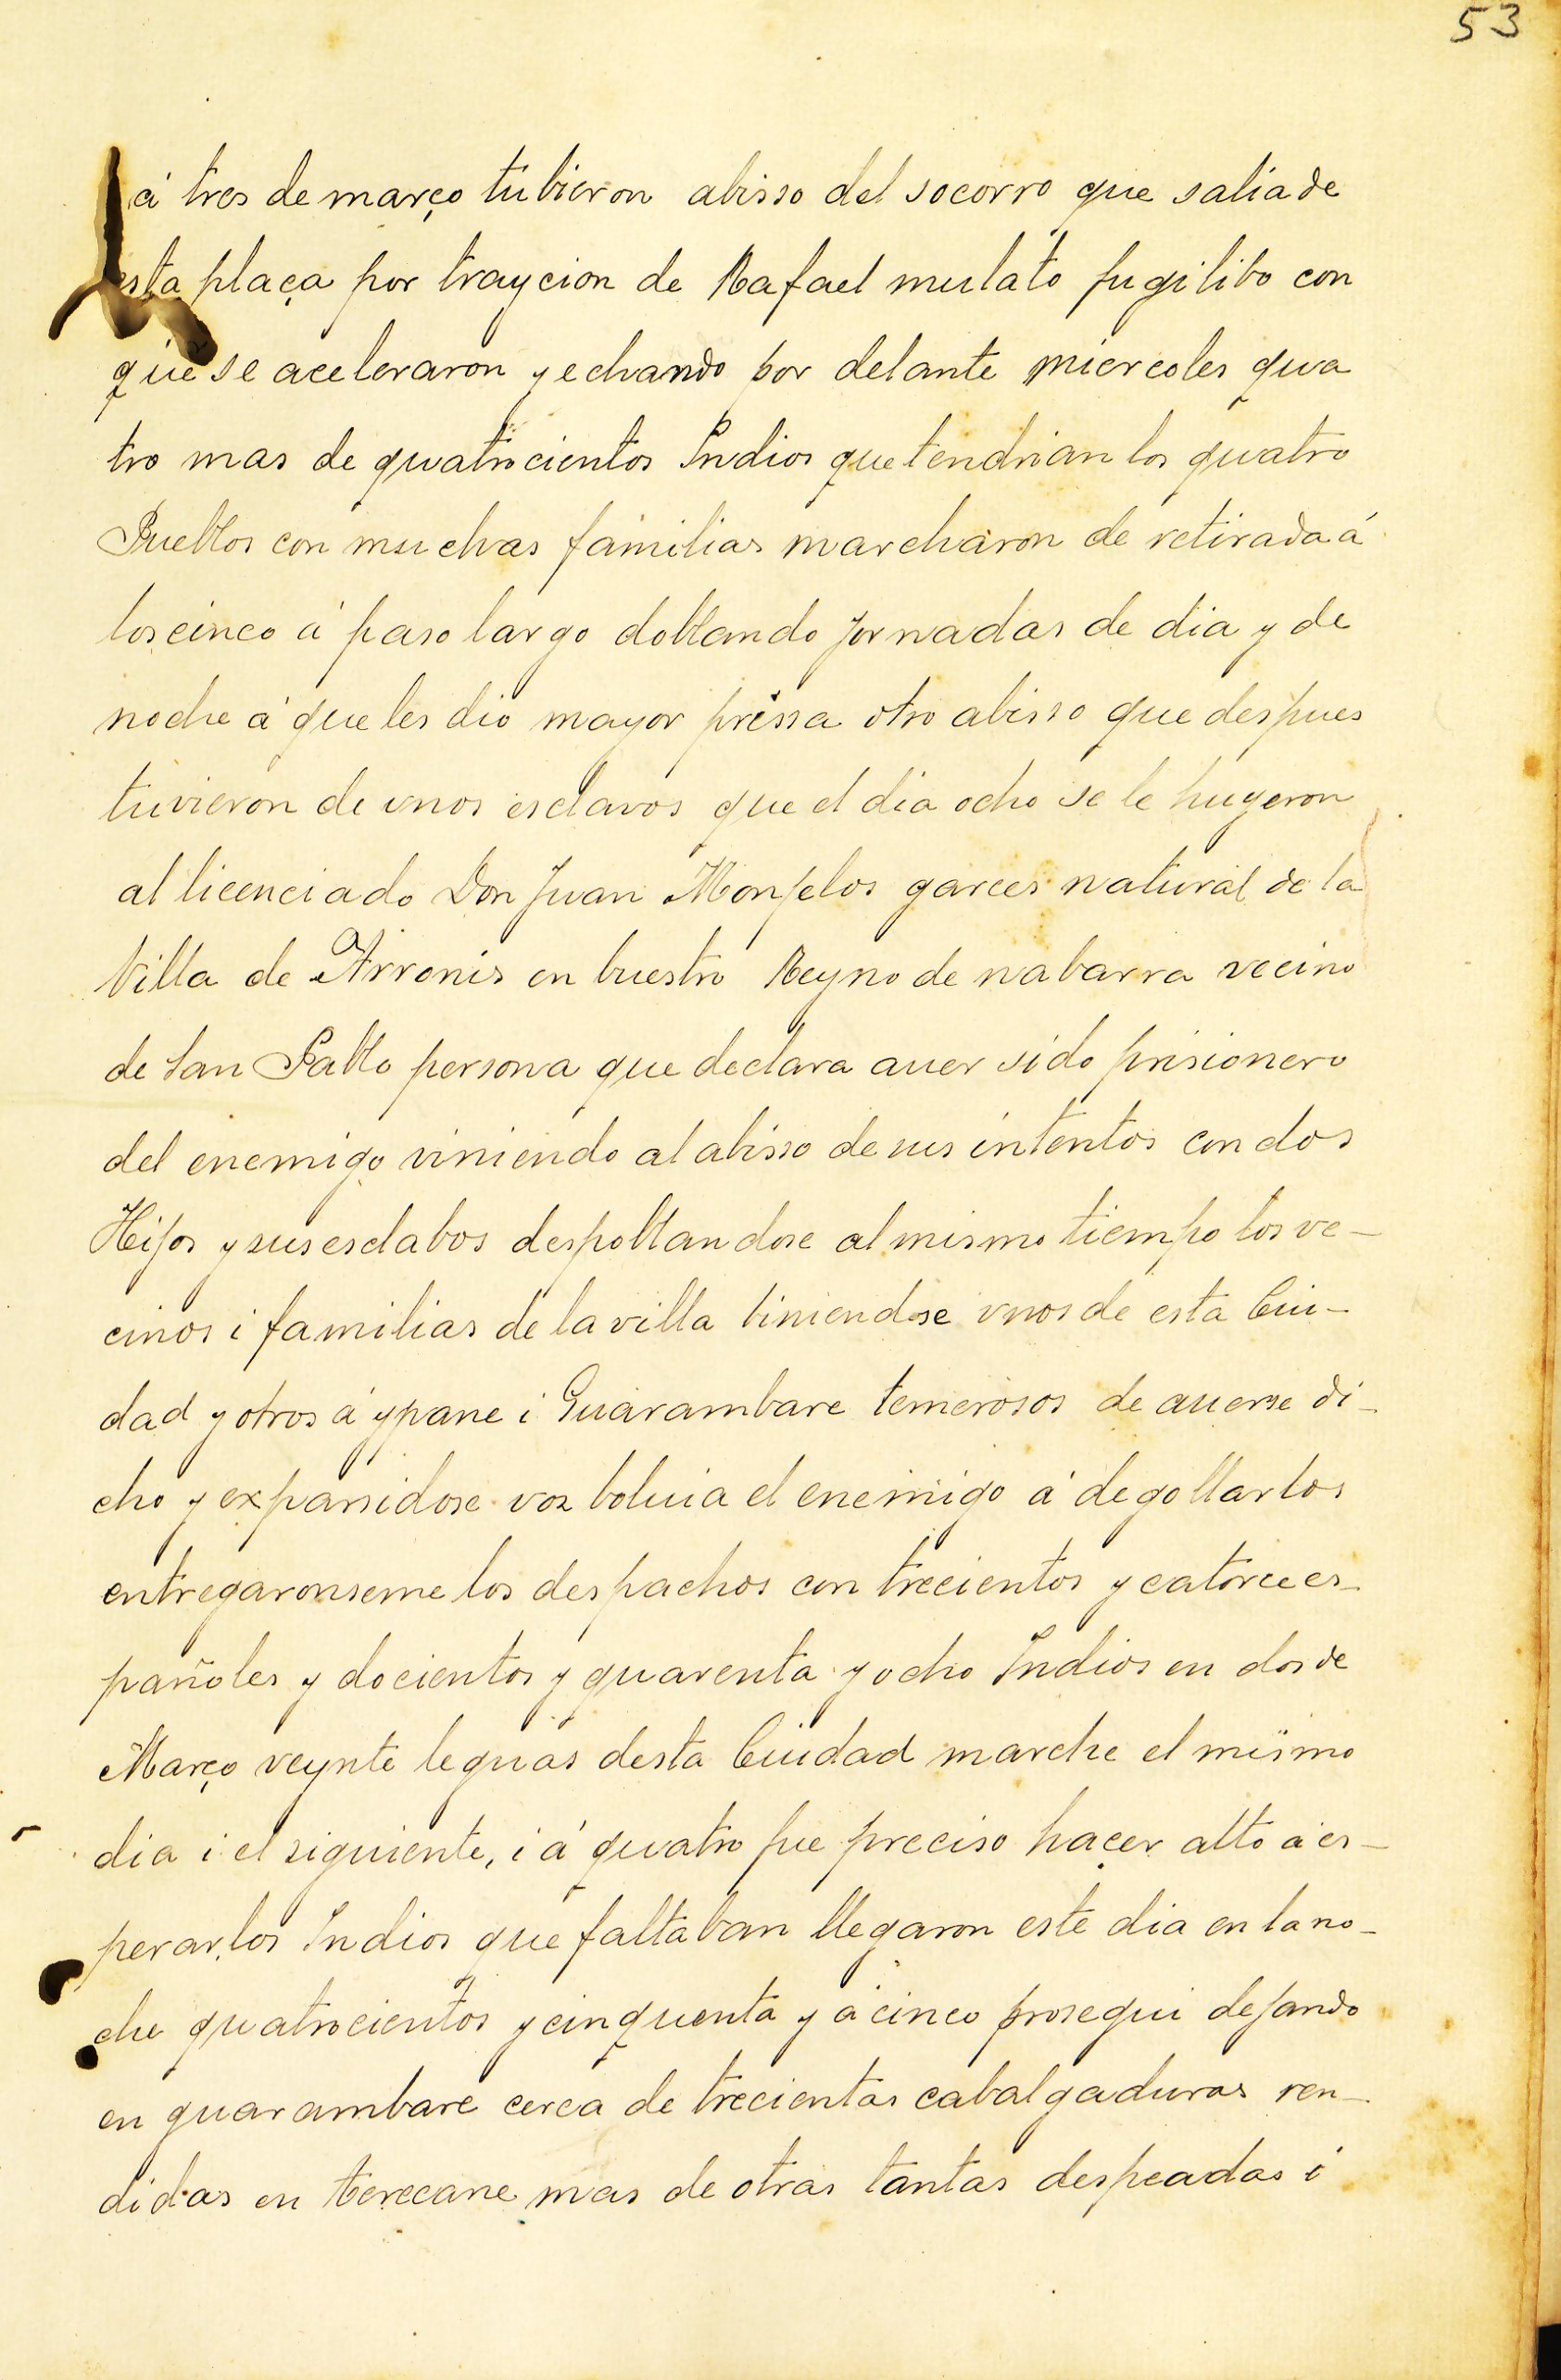 53
á tres de março tubieron abisso del socorro que salia de
esta plaça por traycion de Rafael mulato fugitibo con
que se aceleraron y echando por delante miercoles qua
tro mas de quatrocientos Indios que tendrian los quatro
Pueblos con muchas familias marcharon de retirada á
los cinco á paso largo doblando jornadas de dia y de
noche á que les dio mayor prissa otro abisso que despues
tuvieron de unos esclavos que el dia ocho se le huyeron
al licenciado Don Juan Monjelos garces natural de la
Villa de Arronis en buestro Reyno de nabarra vecino
de San Pablo persona que declara auer sido prisionero
del enemigo viniendo al abisso de sus intentos con dos
Hijos y sus esclabos despoblandose al mismo tiempo los ve-
cinos i familias de la villa biniendose vnos de esta Ciu-
dad y otros á ypane i Guarambare temerosos de auerse di-
cho y exparsidose voz boluia el enemigo á degollarlos
entregaronseme los despachos con trecientos y catorce es-
pañoles y docientos y quarenta y ocho Indios en dos de
Março veynte leguas desta Ciudad marche el mismo
dia i el siguiente, i á quatro fue preciso haçer alto á es-
perar los Indios que faltaban llegaron este dia en la no-
che quatrocientos y cinquenta y á cinco prosegui dejando
en guarambare cerca de trecientas cabalgaduras ren-
didas en terecane mas de otras tantas despeadas i